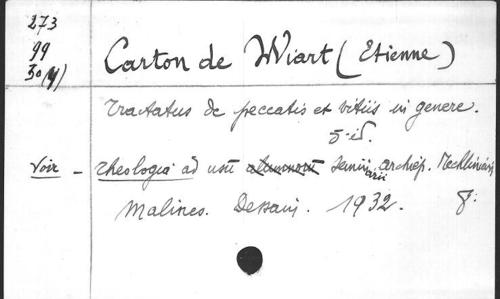 273
99
30(4)
Carton de Wiart (Etienne)
Tractatus de peccatis et vitiis in genere.
5e éd.
Voir - Theologia ad usum alumnorum seminarii archiep. Mechliniensis
Malines. Dessain. 1932. 8°